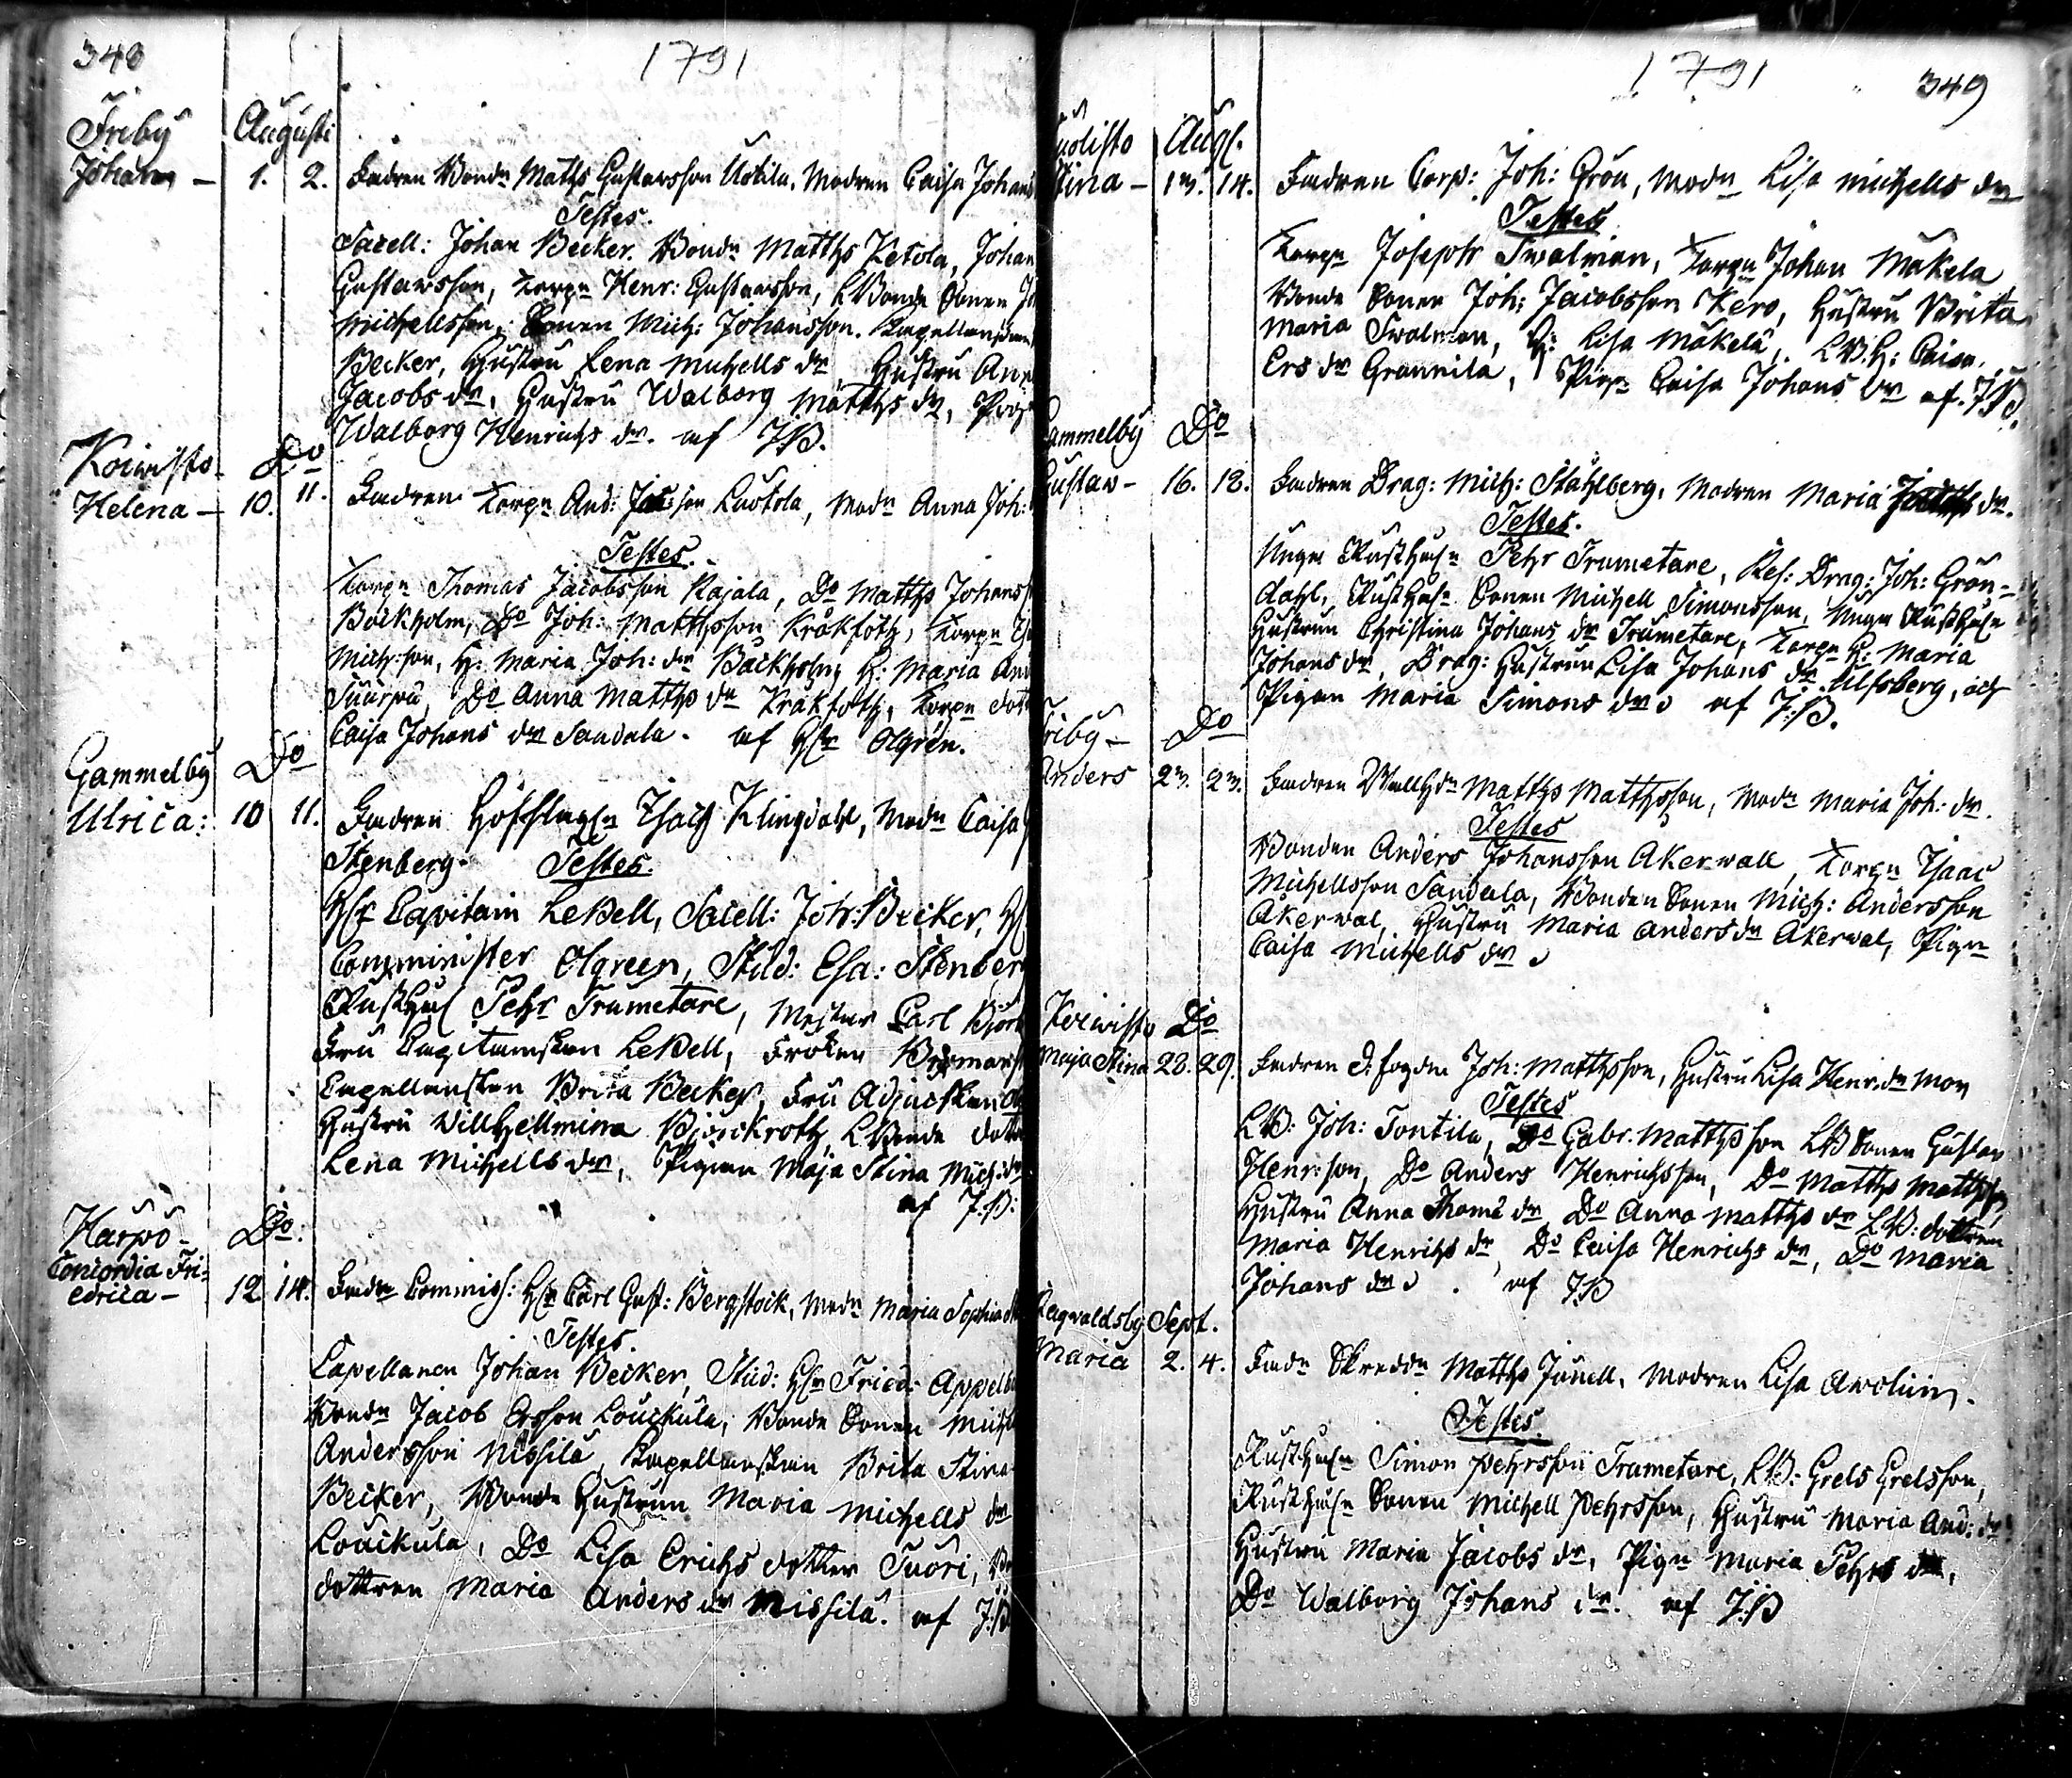 340
1791
Friby Augusti
Johan — 1. 2. Fadren Bondn Matths Gustavsson Uotila, Modren Caisa Johans
Testes.
Sacell: Johan Becker. Bondn Matths Ketola, Johan
Gustavsson, Torpn Henr: Gustavsson, LBonde Sonen
Michellsson, Sonen Mich: Johansson. Kapellanskan
Becker, Hustru Lena Michells dr Hustru Ann
Jacobs dr, Hustru Walborg Matths dr, Pig
Walborg Henrichs dr. af J.B.
Koivisto — Do
Helena — 10. 11. Fadren Torpn And: Jac:son Luotola, Modn Anna Joh:
Testes.
Torpn Thomas Jacobsson Rajala, Do Matths Johans
Bäckholm, Do Joh: Matthsson Kråkfoth, Torpn
Mich:son, H: Maria Joh: dr Bäckholm, H: Maria And
Suurpä, Do Anna Matths dr Kråkfoth, Torpn dot
Caisa Johans dr Sandala. af Hr Olgren.
Gammelby Do
Ulrica: 10 11. Fadren Hofslagn Isach Klingdahl, Modn Caisa
Stenberg. Testes.
Hr Capitain LeBell, Sacell: Joh: Becker, H
Comminister Olgreen, Stud: Esa: Stenberg
Rusthul Pehr Trumetare, Mester Carl Björk
Fru Capitainskan LeBell, Fröken
Capellanskan Brita Becker, Fru Adjunctskan
Hustru Villhellmina Björckroth, LBonde dottr
Lena Michells dr, Pigan Maja Stina Mich: dr
af J.B.
Harpö — Do:
Concordia Fri-
edrica — 12 14. Fadn Commiss: Hr Carl Gust: Bergstock, Modn Maria Sophia
Testes.
Capellanen Johan Becker, Stud: Hr Fried: Appelb
Bondn Jacob Ersson Louckula, Bonde Sonen Mich
Andersson Nissilä, Kapellanskan Brita Stina
Becker, Bonde Hustrun Maria Michells dr
Louckula, Do Lisa Erichs dotter Suori,
dottren Maria Anders dr Nissilä. af J.B.
1791 349
uolisto Augl.
Stina — 13. 14. Fadren Corp: Joh: Grön, Modn Lisa Michells dr
Testes
Torpn Joseph Swalman, Torpn Johan Mäkelä
Bonde Sonen Joh: Jacobsson Kero, Hustru Brita
Maria Swalman, H: Lisa Mäkelä, LB.H: Caisa
Ers dr Grannila, Pign Caisa Johans dr af J.B.
Gammelby Do
Gustav — 16. 18. Fadren Drag: Mich: Ståhlberg, Modren Maria dr.
Testes.
Unga Rusthn Pehr Trumetare, Res: Drag: Joh: Grön-
dahl, Rusth Sonen Michell Simonsson, Unga Rusthn
Hustrun Christina Johans dr Trumetare, Torpn H: Maria
Johans dr, Drag: Hustrun Lisa Johans dr Ulfsberg, och
Pigan Maria Simons dr af J.B.
Friby — Do
Anders 23. 23. Fadren Matths Matthsson, Modn Maria Joh: dr.
Testes
Bonden Anders Johansson Akerwall, Torpn Isaac
Michellsson Sandala, Bonden Sonen Mich: Andersson
Akerwal, Hustru Maria Anders dr Akerwal, Pign
Caisa Michells dr
Koivisto Do
Maja Stina 28. 29. Fadren Joh: Matthsson, Hustru Lisa Henr: dr Mon
Testes
LB: Joh: Tontila, Do Gabr: Matthsson LB Sonen Gustav
Henr:son, Do Anders Henrichsson, Do Matths Matthsson,
Hustru Anna Thoms dr Do Anna Matths dr LB: dottren
Maria Henrichs dr, Do Caisa Henrichs dr, Do Maria
Johans dr. af J.B
Ragvaldsby Sept.
Maria 2. 4. Fadn Skreddn Matths Junell, Modren Lisa Avolin.
Testes.
Rusthn Simon Pehrsson Trumetare, LB: Grels Grelsson,
Rusthn Sonen Michell Pehrsson, Hustru Maria And: dr
Hustru Maria Jacobs dr, Pign Maria Pehrs dr,
Do Walborg Johans dr. af J.B